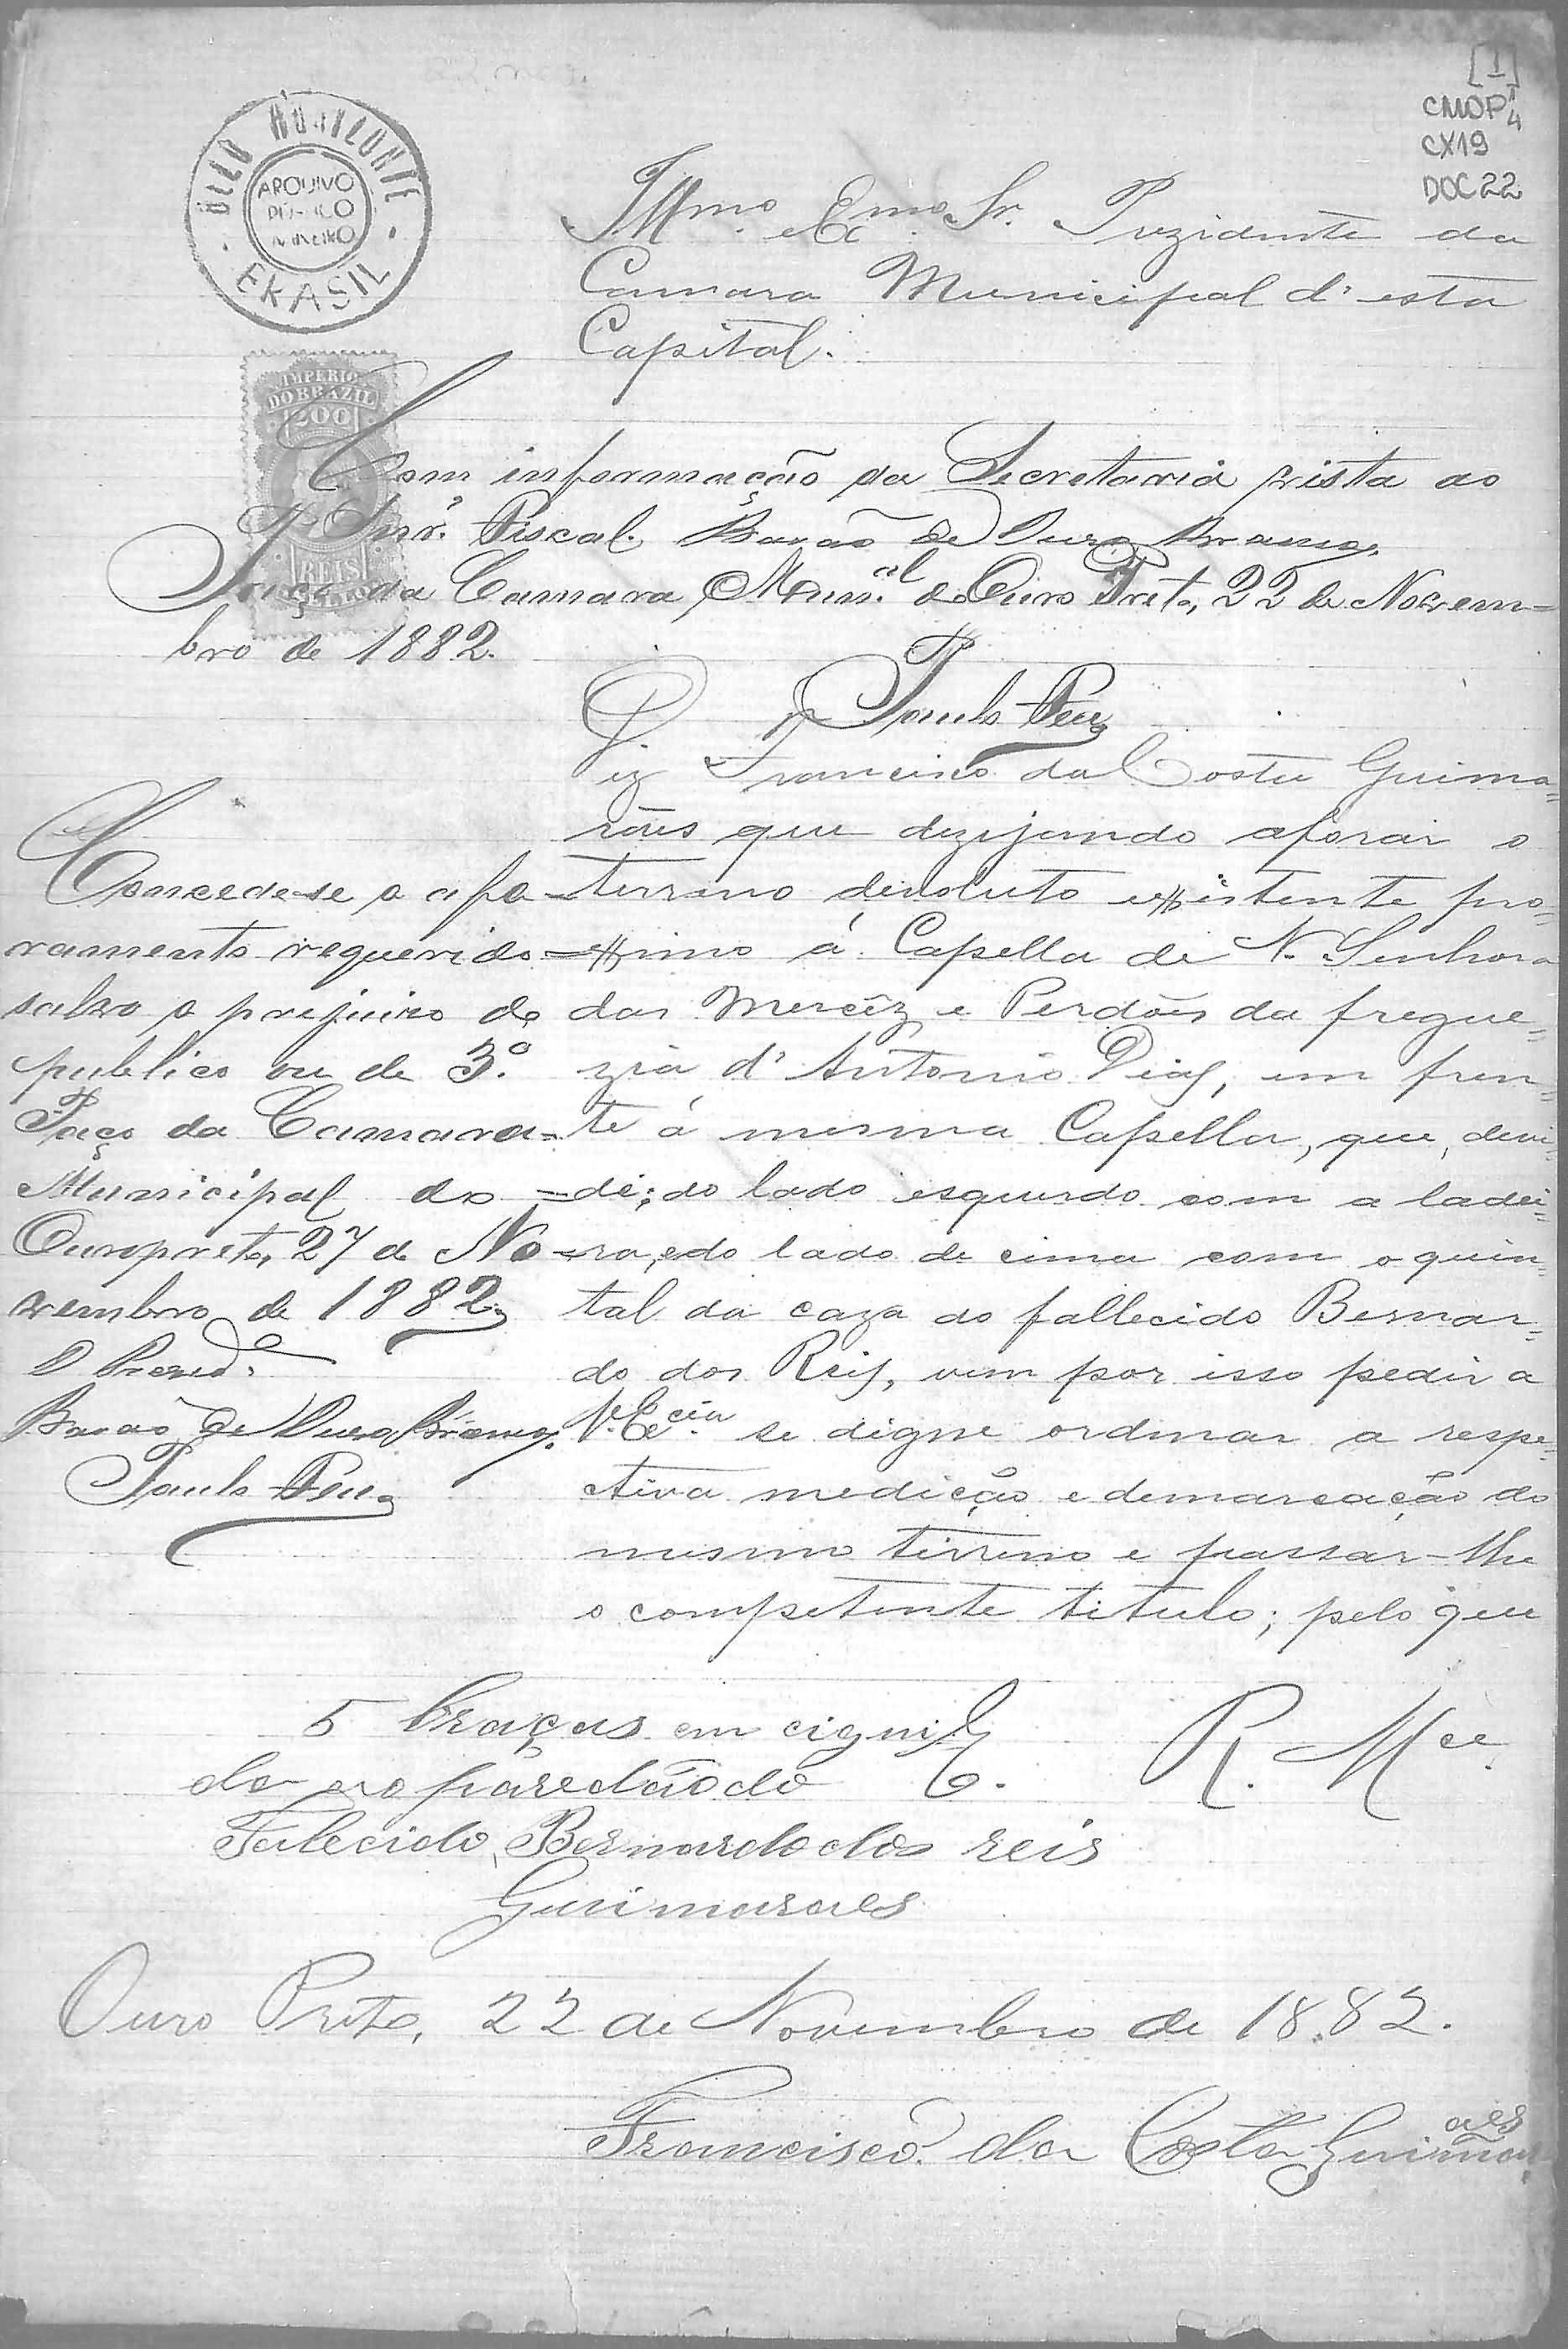 [1]
CMOP 1/4
CX19
DOC 22
BELLO HORIZONTE
ARQUIVO
PUBLICO
MINEIRO
BRASIL
Illmo. Exmo. Sr. Prezidente da
Camara Municipal d'esta
Capital.
IMPERIO
DO BRAZIL
200
REIS
Com informação da Secretaria vista ao
Snr. Fiscal. Barão de Ouro Branco.
Paço da Camara Munal. de Ouro Preto, 22 de Novem=
bro de 1882.
Paula
Diz Francisco da Costa Guima=
rães que dezijando aforar o
terreno devoluto existente pro=
ximo á Capella de N. Senhora
das Mercêz e Perdões da fregue=
zia d'Antonio Dias, em fren=
te á mesma Capella, que, devi=
de; do lado esquerdo com a ladei=
ra, e do lado de cima com o quin=
tal da caza do fallecido Bernar=
do dos Reis, vem por isso pedir a
V. Excia. se digne ordenar a respe=
ctiva medição e demarcação do
mesmo terreno e passar-lhe
o competente titulo; pelo que
Concede-se o afo=
ramento requerido=
salvo o prejuizo do
publico ou de 3.o
Paço da Camara=
Municipal do
Ouropreto, 27 de No=
vembro de 1882.
O Prezid.e
Barão de Ouro Branco.
Paula
E.
R. Mce.
5 braças em
do ao paredão do
Falecido Bernardo dos reis
Guimaraes
Ouro Preto, 22 de Novembro de 1882.
Francisco da Costa Guimaraes